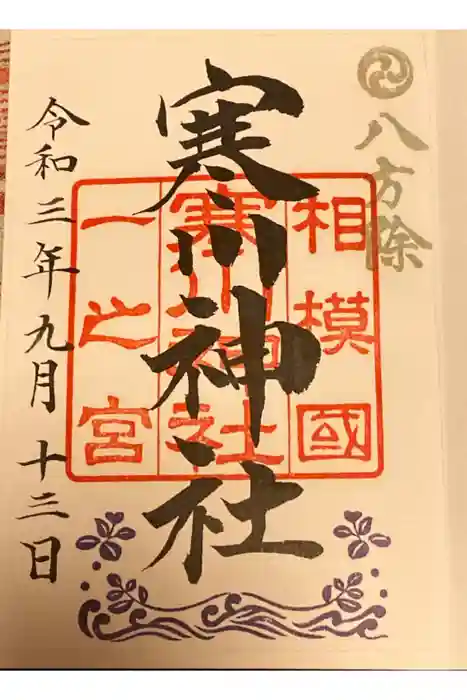 八方除
相模國
寒川神社
一之宮
寒川神社
令和三年九月十三日